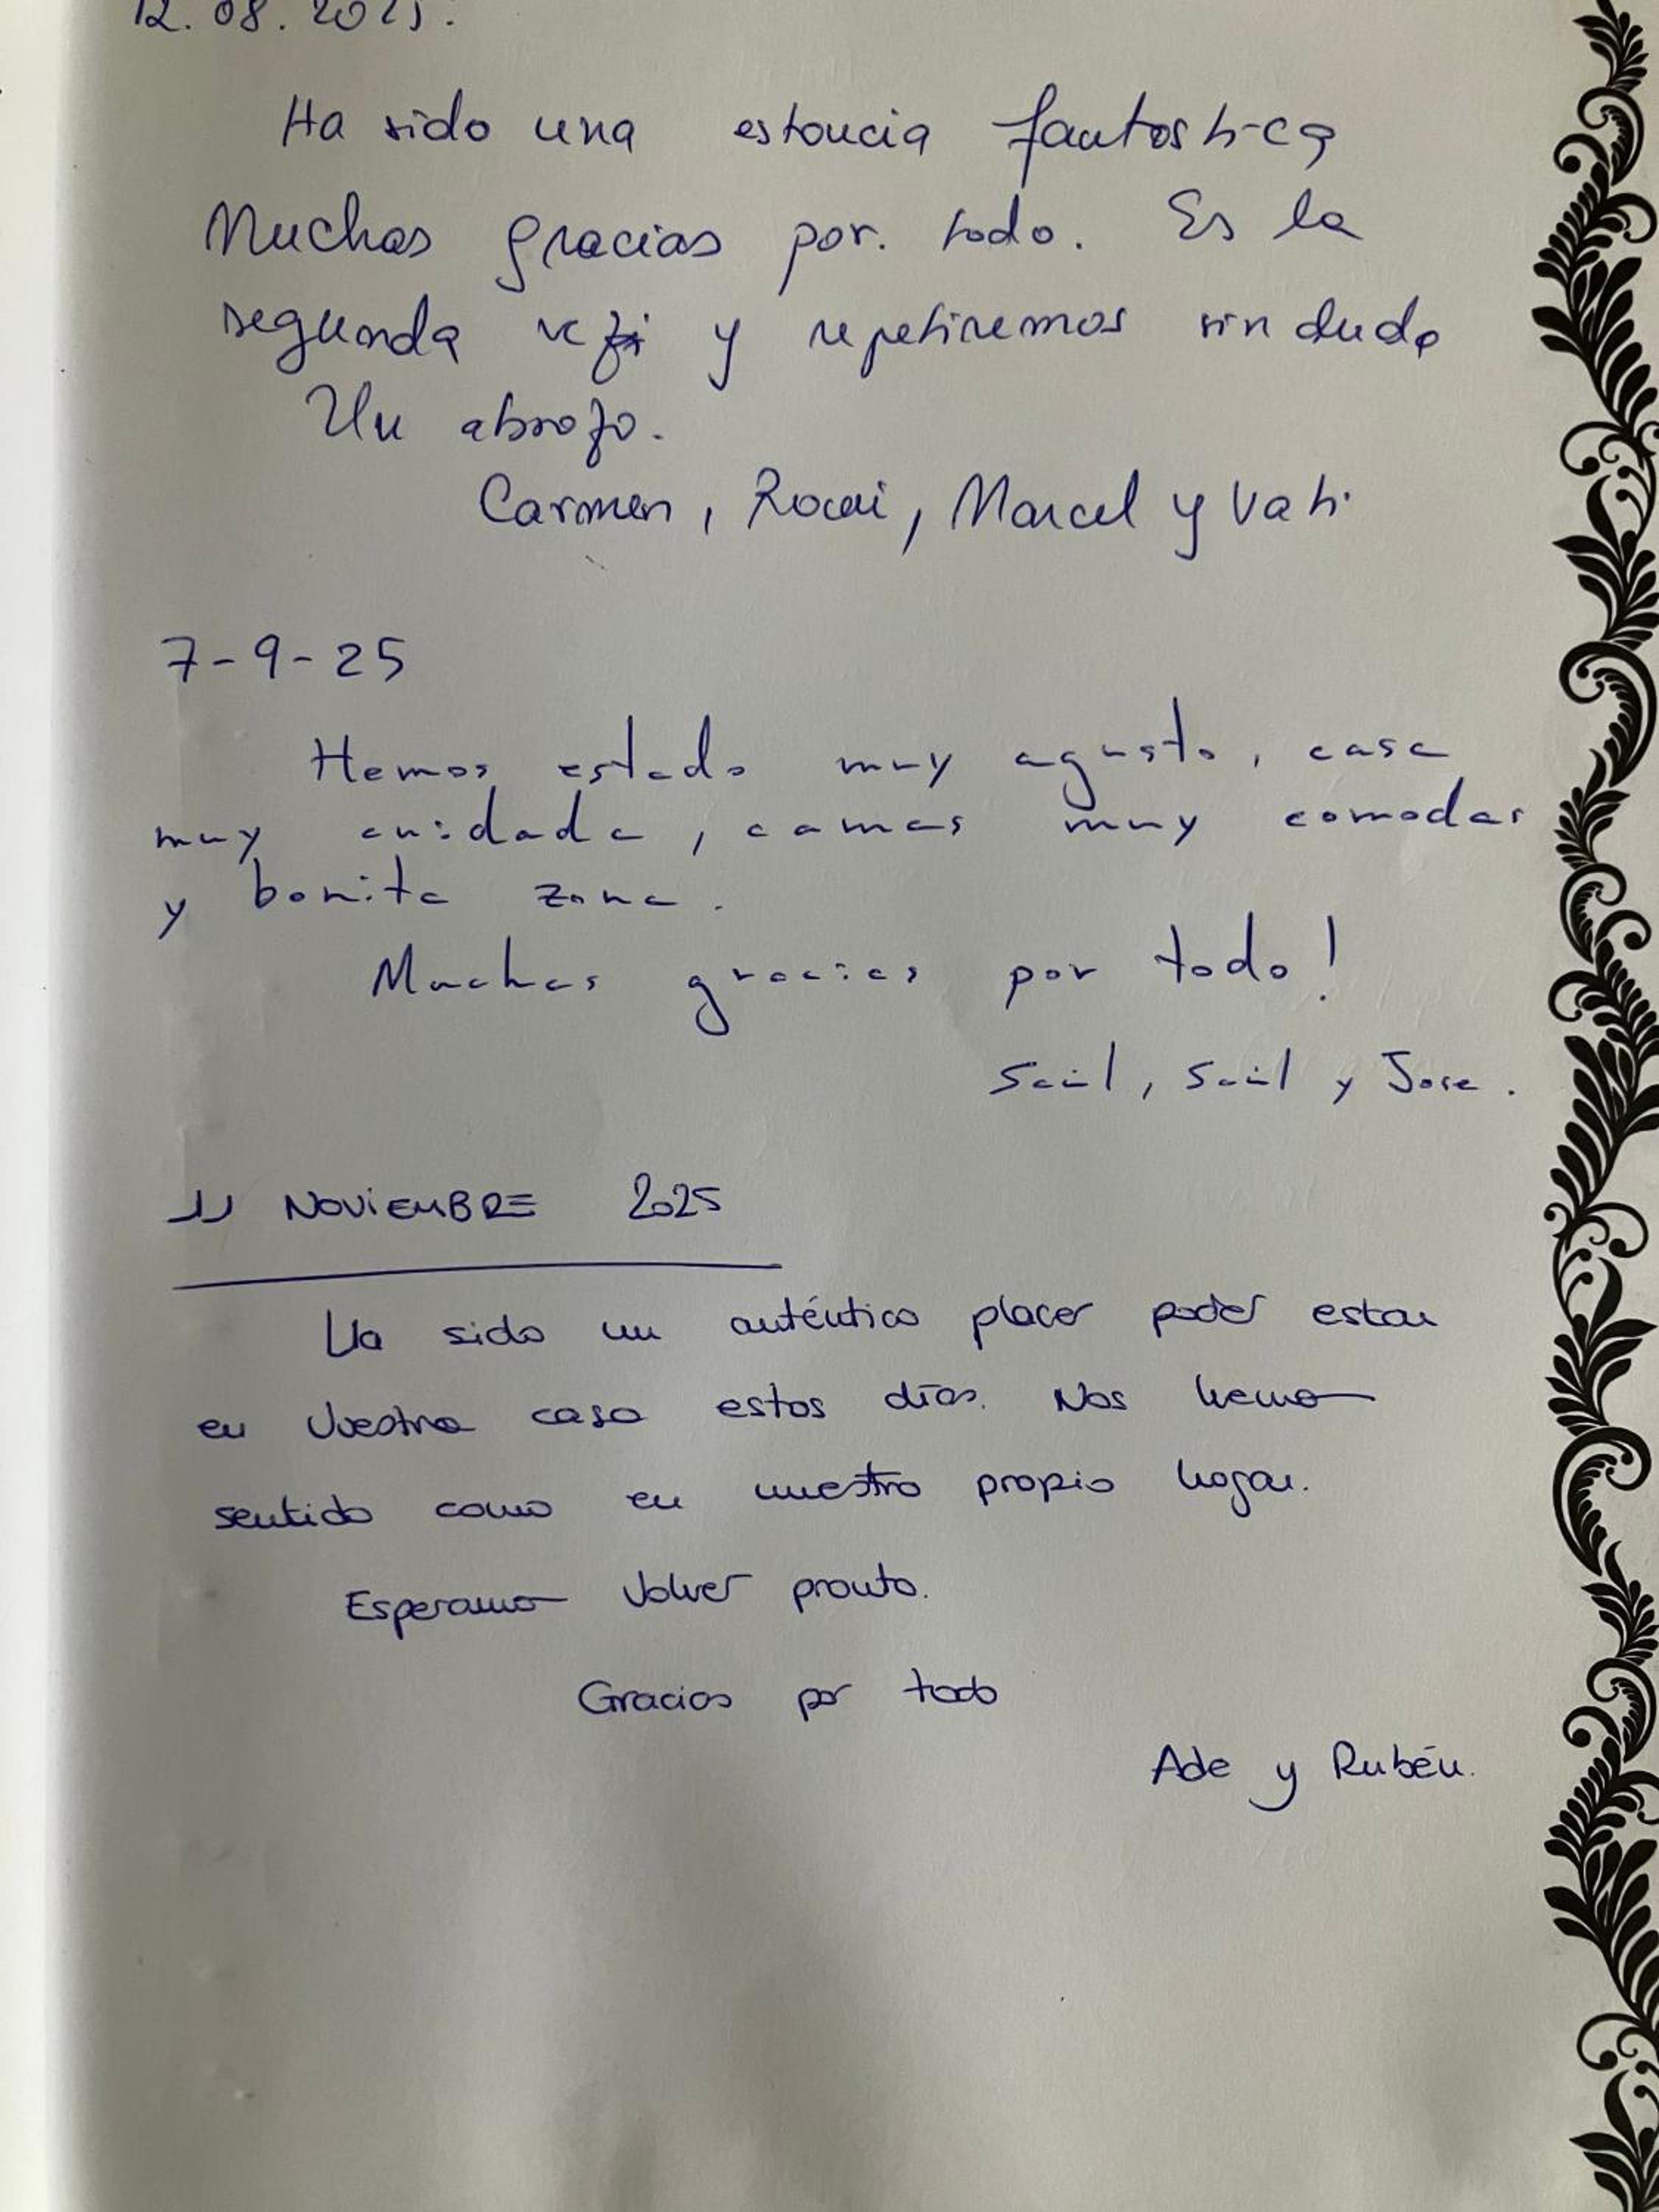 12.08.2025.
Ha sido una estancia fantastica
Muchas gracias por. todo. Es la
segunda vez y repetiremos sin duda
Un abrazo.
Carmen, Marcel y
7-9-25
Hemos estado muy agusto, casa
muy cuidada, camas muy comodas
y bonita zona.
Muchas gracias por todo!
Saúl, Saúl y Jose.
11 NOVIEMBRE 2025
Ha sido un auténtico placer poder estar
en vuestra casa estos días. Nos hemos
sentido como en nuestro propio hogar.
Esperamos volver pronto.
Gracias por todo
Ade y Rubén.